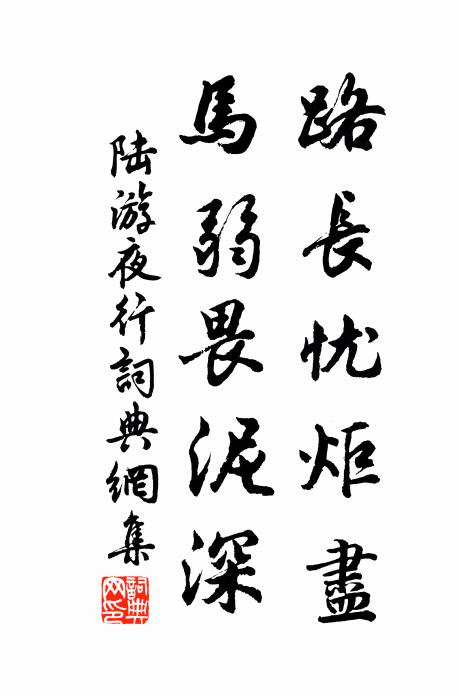 路長忧炬盡
馬弱畏泥深
陆游夜行詞典網集
詞典网印